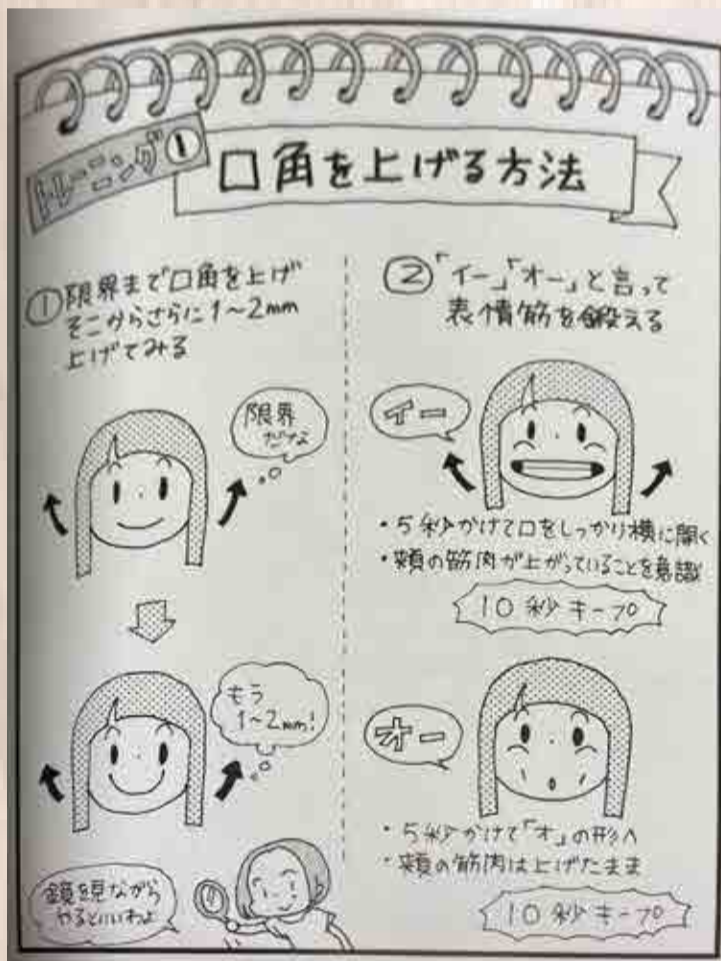 トレーニング①
口角を上げる方法
①限界まで口角を上げ
そこからさらに1〜2mm
上げてみる
限界
だな
もう
1〜2mm!
鏡を見ながら
やるといいわよ
②「イー」「オー」と言って
表情筋を鍛える
イー
・5秒かけて口をしっかり横に開く
・頬の筋肉が上がっていることを意識
10秒キープ
オー
・5秒かけて「オ」の形へ
・頬の筋肉は上げたまま
10秒キープ